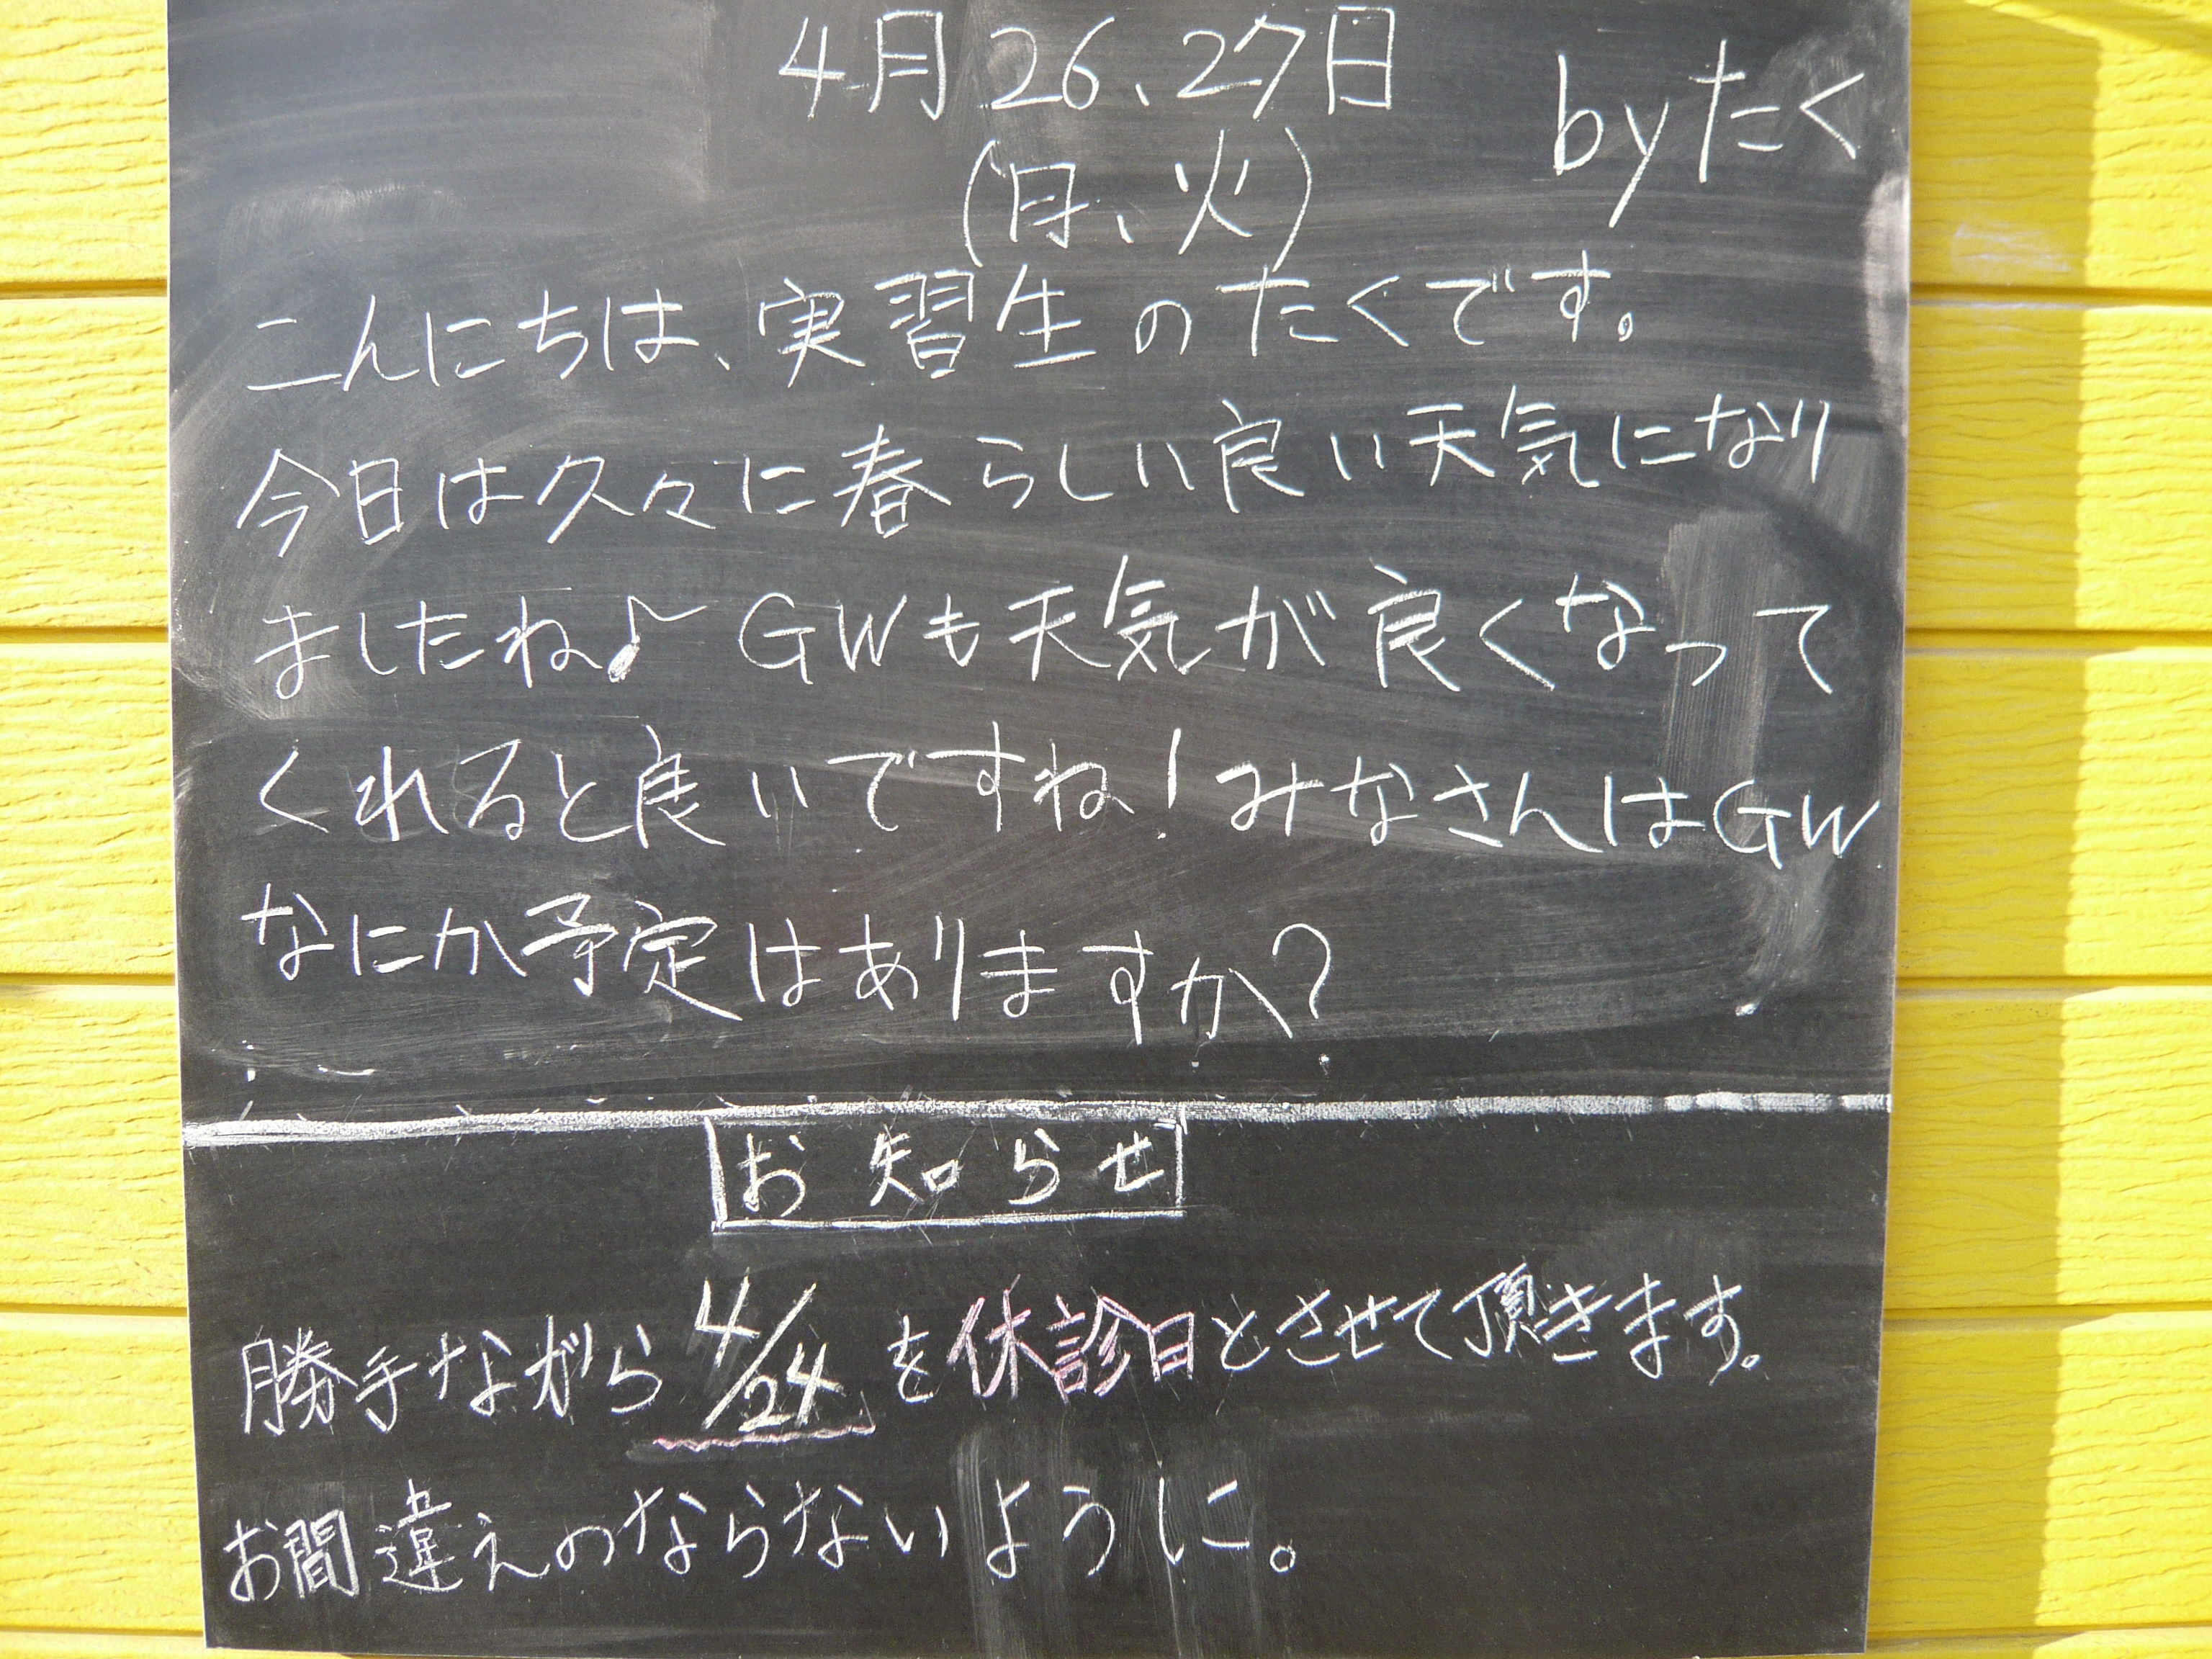 4月26、27日
(月、火)
byたく
こんにちは、実習生のたくです。
今日は久々に春らしい良い天気になり
ましたね♪GWも天気が良くなって
くれると良いですね!みなさんはGW
なにか予定はありますか?
お知らせ
勝手ながら4/24を休診日とさせて頂きます。
お間違えのならないように。